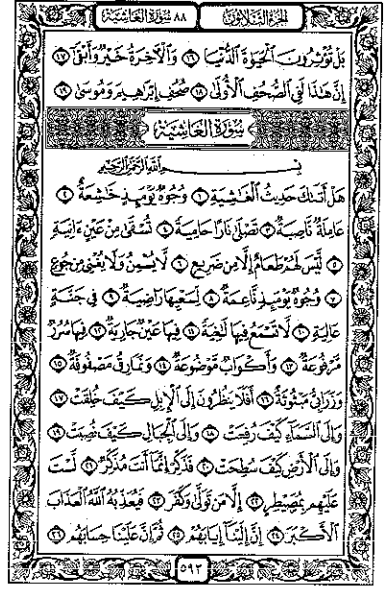 الجزء الثلاثون ٨٨ سورة الغاشية
بَلْ تُؤْثِرُونَ ٱلْحَيَوٰةَ ٱلدُّنْيَا ١٦ وَٱلْـَٔاخِرَةُ خَيْرٌ وَأَبْقَىٰٓ ١٧
إِنَّ هَـٰذَا لَفِى ٱلصُّحُفِ ٱلْأُولَىٰ ١٨ صُحُفِ إِبْرَٰهِيمَ وَمُوسَىٰ ١٩
سُورَةُ الغَاشِيَةِ
بِسْمِ ٱللَّهِ ٱلرَّحْمَـٰنِ ٱلرَّحِيمِ
هَلْ أَتَىٰكَ حَدِيثُ ٱلْغَـٰشِيَةِ ١ وُجُوهٌ يَوْمَئِذٍ خَـٰشِعَةٌ ٢
عَامِلَةٌ نَّاصِبَةٌ ٣ تَصْلَىٰ نَارًا حَامِيَةً ٤ تُسْقَىٰ مِنْ عَيْنٍ ءَانِيَةٍ
٥ لَّيْسَ لَهُمْ طَعَامٌ إِلَّا مِن ضَرِيعٍ ٦ لَّا يُسْمِنُ وَلَا يُغْنِى مِن جُوعٍ
٧ وُجُوهٌ يَوْمَئِذٍ نَّاعِمَةٌ ٨ لِّسَعْيِهَا رَاضِيَةٌ ٩ فِى جَنَّةٍ
عَالِيَةٍ ١٠ لَّا تَسْمَعُ فِيهَا لَـٰغِيَةً ١١ فِيهَا عَيْنٌ جَارِيَةٌ ١٢ فِيهَا سُرُرٌ
مَّرْفُوعَةٌ ١٣ وَأَكْوَابٌ مَّوْضُوعَةٌ ١٤ وَنَمَارِقُ مَصْفُوفَةٌ ١٥
وَزَرَابِىُّ مَبْثُوثَةٌ ١٦ أَفَلَا يَنظُرُونَ إِلَى ٱلْإِبِلِ كَيْفَ خُلِقَتْ ١٧
وَإِلَى ٱلسَّمَآءِ كَيْفَ رُفِعَتْ ١٨ وَإِلَى ٱلْجِبَالِ كَيْفَ نُصِبَتْ ١٩
وَإِلَى ٱلْأَرْضِ كَيْفَ سُطِحَتْ ٢٠ فَذَكِّرْ إِنَّمَآ أَنتَ مُذَكِّرٌ ٢١ لَّسْتَ
عَلَيْهِم بِمُصَيْطِرٍ ٢٢ إِلَّا مَن تَوَلَّىٰ وَكَفَرَ ٢٣ فَيُعَذِّبُهُ ٱللَّهُ ٱلْعَذَابَ
ٱلْأَكْبَرَ ٢٤ إِنَّ إِلَيْنَآ إِيَابَهُمْ ٢٥ ثُمَّ إِنَّ عَلَيْنَا حِسَابَهُم ٢٦
٥٩٢